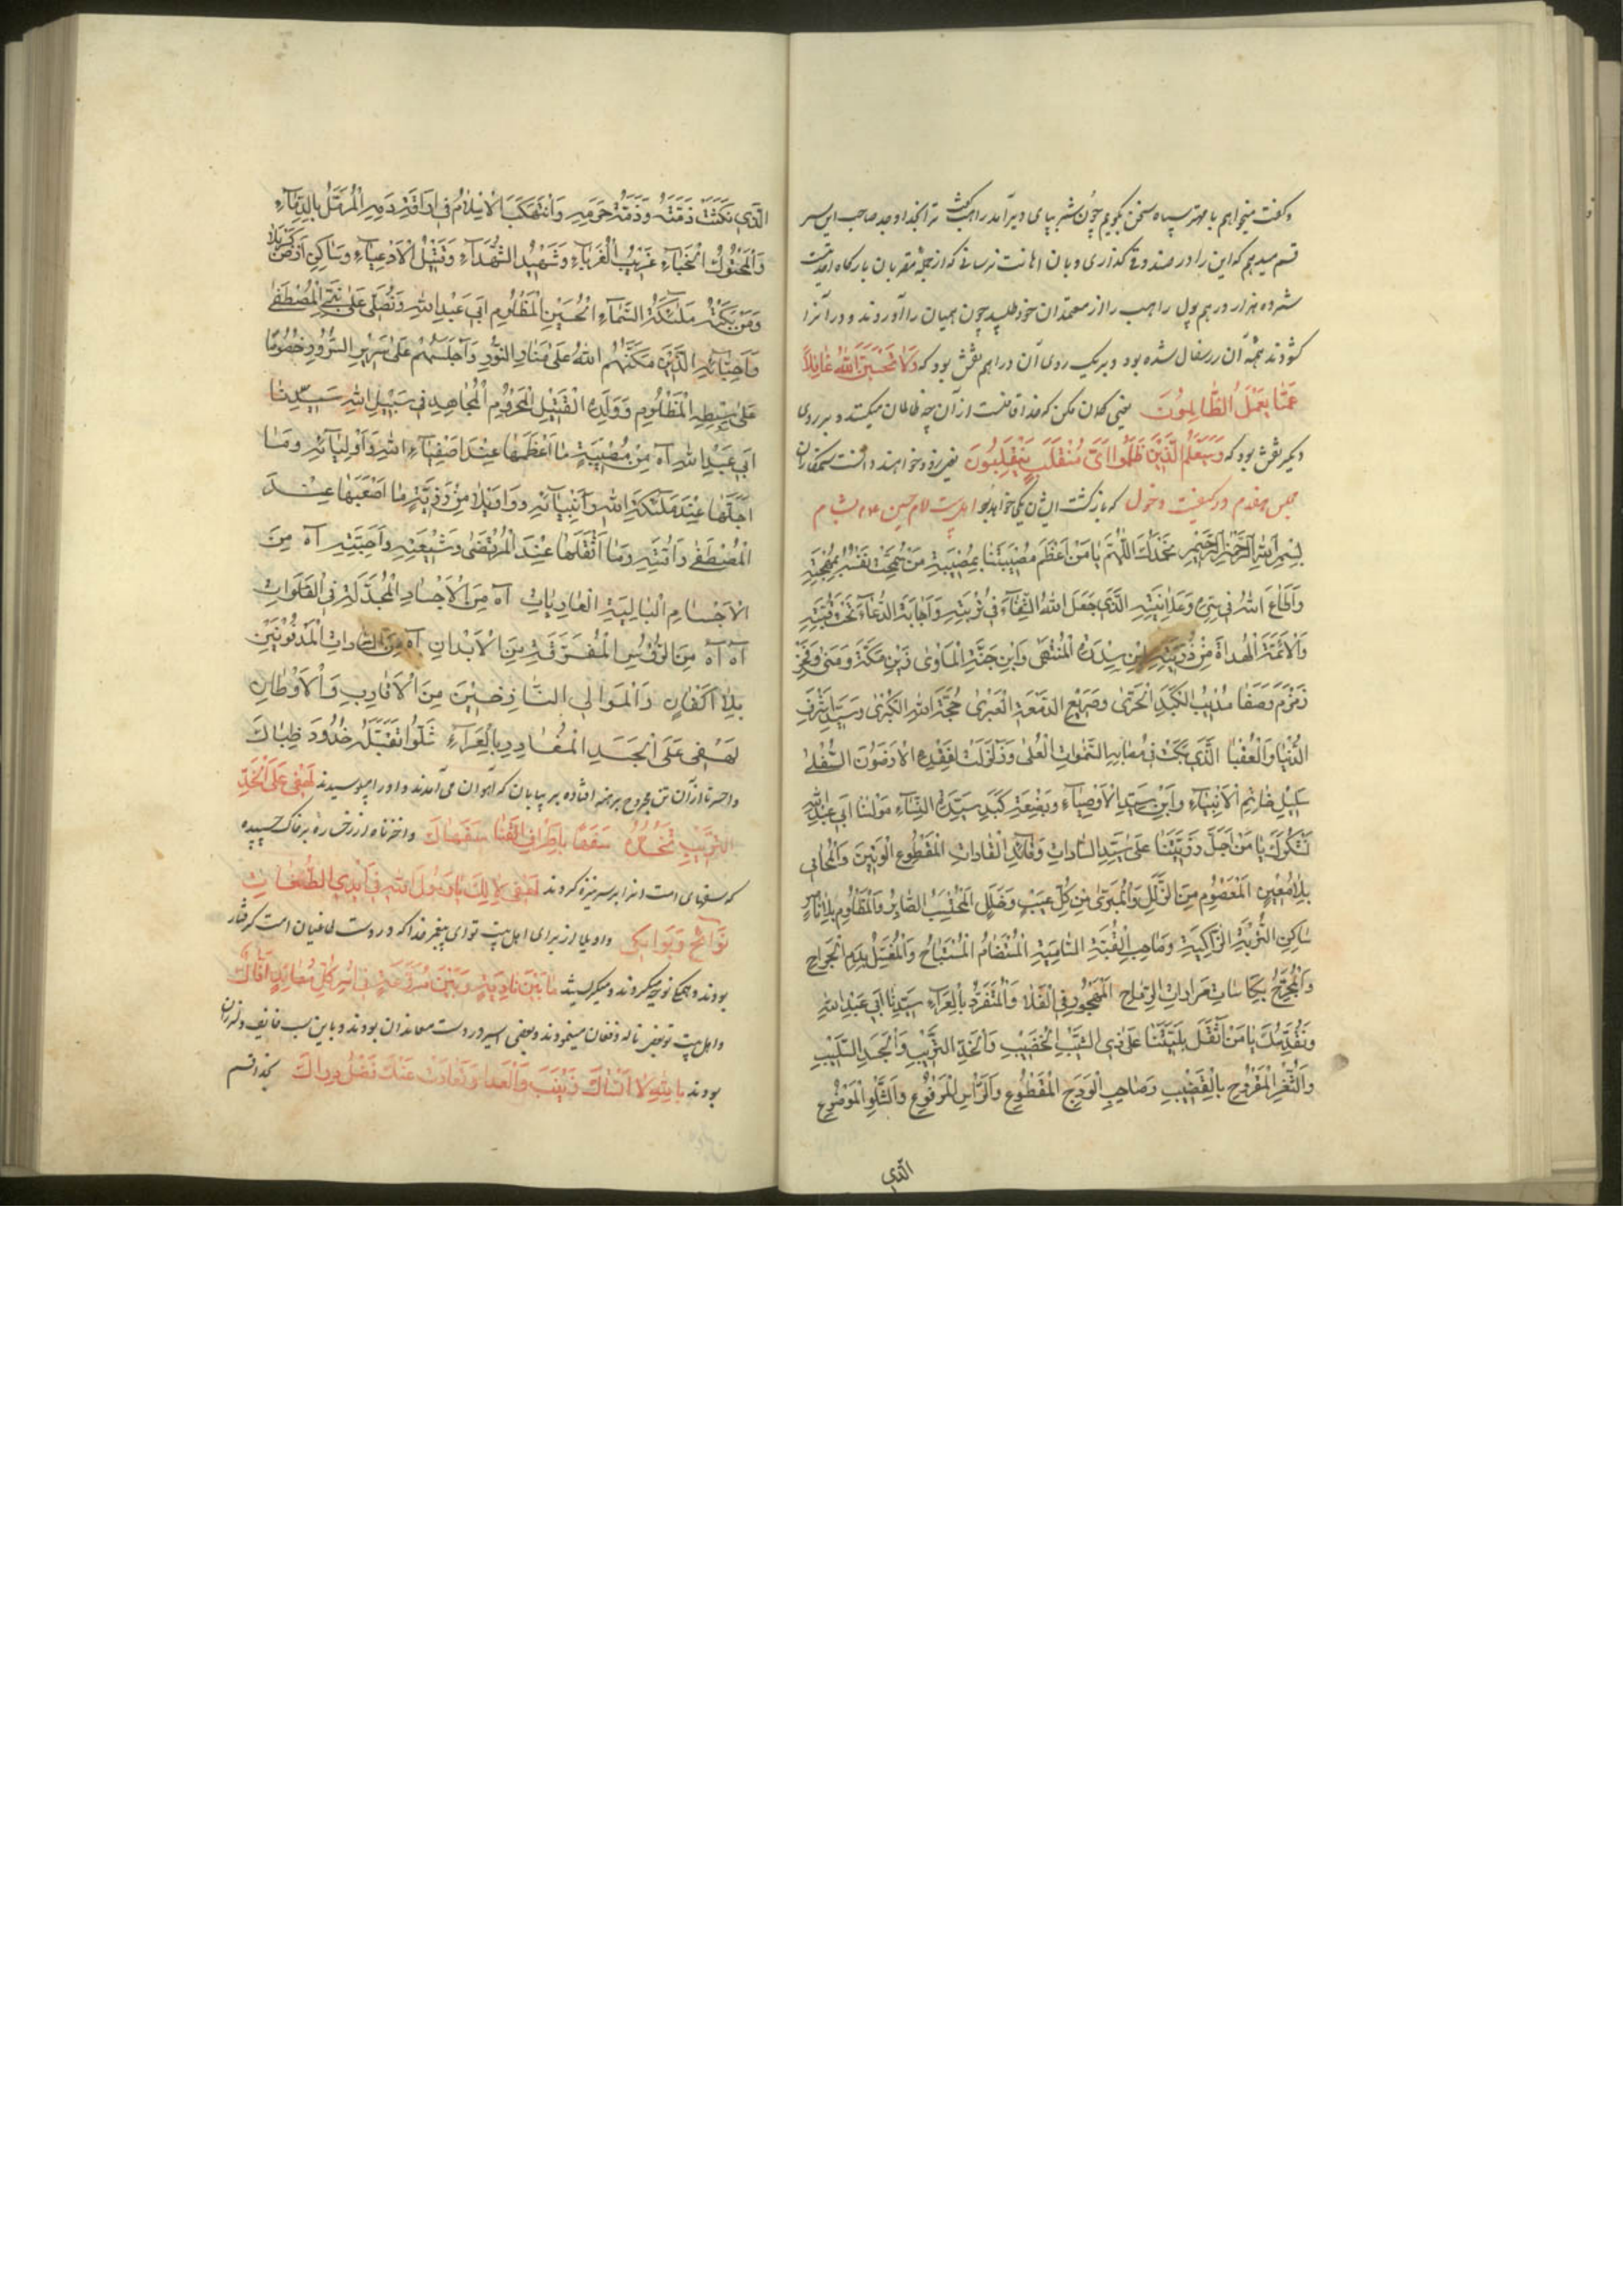 وگفت میخواهم با مهتر سپاه سخن بگویم چون شمر پیامی دیر آمد راهب گفت ترا بخدا و بجد صاحب این سر
قسم میدهم که این را در صندوق گذاری و بان اهانت نرسانی که از جمله مقربان بارگاه احدیت
شمر ده هزار درهم پول راهب را از معتمدان خود طلبید چون همیان را آوردند و در آنرا
گشودند همهٔ آن زر سفال شده بود و بر یک روی آن دراهم نقش بود که وَلَا تَحْسَبَنَّ اللّٰهَ غَافِلًا
عَمَّا يَعْمَلُ الظَّالِمُونَ یعنی گمان مکن که خدا غافلست از آن چه ظالمان میکنند و بر روی
دیگر نقش بود که وَسَيَعْلَمُ الَّذِينَ ظَلَمُوا اَيَّ مُنْقَلَبٍ يَنْقَلِبُونَ یعنی زود خواهند دانست ستمکاران
که بازگشت ایشان بکجا خواهد بود مجلس هفدهم در کیفیت دخول اهلبیت امام حسین ع بشام
بِسْمِ اللّٰهِ الرَّحْمٰنِ الرَّحِيمِ نَحْمَدُكَ اللّٰهُمَّ يَا مَنْ اَعْظَمَ مُصِيبَتَنَا بِمُصِيبَةِ مَنْ سَمَحَتْ نَفْسُهُ بِمُهْجَتِهِ
وَاَطَاعَ اللّٰهَ فِي سِرِّهِ وَعَلَانِيَتِهِ الَّذِي جَعَلَ اللّٰهُ الشِّفَاءَ فِي تُرْبَتِهِ وَاِجَابَةَ الدُّعَاءِ تَحْتَ قُبَّتِهِ
وَالْاَئِمَّةَ الْهُدَاةَ مِنْ ذُرِّيَّتِهِ ابْنِ سِدْرَةِ الْمُنْتَهَى وَابْنِ جَنَّةِ الْمَاْوَى وَابْنِ مَكَّةَ وَمِنَى وَفَخْرِ
زَمْزَمَ وَصَفَا مُذِيبِ الْكَبَدِ الْحَرَّى وَصَرِيعِ الدَّمْعَةِ الْعَبْرَى حُجَّةِ اللّٰهِ الْكُبْرَى وَسَيِّدِ اَشْرَفِ
الدُّنْيَا وَالْعُقْبَا الَّذِي بَكَتْ فِي مُصَابِهِ السَّمٰوَاتُ الْعُلَى وَزُلْزِلَتْ لِفَقْدِهِ الْاَرَضُونَ السُّفْلَى
سَلِيلِ خَاتَمِ الْاَنْبِيَاءِ وَابْنِ سَيِّدِ الْاَوْصِيَاءِ وَبَضْعَةِ كَبَدِ سَيِّدَةِ النِّسَاءِ مَوْلٰنَا اَبِي عَبْدِ اللّٰهِ
نَشْكُرُكَ يَا مَنْ اَجَلَّ رَزِيَّتَنَا عَلَى سَيِّدِ السَّادَاتِ وَقَائِدِ الْقَادَاتِ الْمَقْطُوعِ الْوَتِينَ وَالْمُحَامِي
بِلَا مُعِينٍ الْمَعْصُومِ مِنَ الزَّلَلِ وَالْمُبَرَّى مِنْ كُلِّ عَيْبٍ وَخَلَلٍ الْمُحْتَسِبِ الصَّابِرِ وَالْمَظْلُومِ بِلَا نَاصِرٍ
سَاكِنِ التُّرْبَةِ الزَّاكِيَةِ وَصَاحِبِ الْقُبَّةِ السَّامِيَةِ الْمُسْتَضَامِ الْمُسْتَبَاحِ وَالْمُغَسَّلِ بِدَمِ الْجِرَاحِ
وَالْمُجَرَّعِ بِكَاسَاتِ مَرَارَاتِ الرِّمَاحِ الْمَهْجُورِ فِي الْفَلَاةِ وَالْمُتَفَرِّدِ بِالْعَرَاءِ سَيِّدِنَا اَبِي عَبْدِ اللّٰهِ
وَنُقَدِّسُكَ يَا مَنْ اَثْقَلَ بَلِيَّتَنَا عَلَى ذِي الشَّيْبِ الْخَضِيبِ وَالْخَدِّ التَّرِيبِ وَالْجَسَدِ السَّلِيبِ
وَالثَّغْرِ الْمَقْرُوعِ بِالْقَضِيبِ وَصَاحِبِ الْوَدَجِ الْمَقْطُوعِ وَالرَّاْسِ الْمَرْفُوعِ وَالشِّلْوِ الْمَوْضُوعِ
الَّذِي
الَّذِي نُكِثَتْ ذِمَّتُهُ وَذِمَّةُ حَرَمِهِ وَانْتُهِكَ الْاِسْلَامُ فِي اِرَاقَةِ دَمِهِ الْمُرَمَّلِ بِالدِّمَاءِ
وَالْمَهْتُوكِ الْخِبَاءِ غَرِيبِ الْغُرَبَاءِ وَشَهِيدِ الشُّهَدَاءِ وَقَتِيلِ الْاَدْعِيَاءِ وَسَاكِنِ اَرْضِ كَرْبَلَا
وَمَنْ بَكَتْهُ مَلٰئِكَةُ السَّمَاءِ الْحُسَيْنِ الْمَظْلُومِ اَبِي عَبْدِ اللّٰهِ وَنُصَلِّي عَلَى نَبِيِّهِ الْمُصْطَفَى
وَاَحِبَّائِهِ الَّذِينَ مَكَّنَهُمُ اللّٰهُ عَلَى مَنَابِرِ النُّورِ وَاَجْلَسَهُمْ عَلَى سَرِيرِ السُّرُورِ خُصُوصًا
عَلَى سِبْطِهِ الْمَظْلُومِ وَوَلَدِهِ الْقَتِيلِ الْمَحْرُومِ الْمُجَاهِدِ فِي سَبِيلِ اللّٰهِ سَيِّدِنَا
اَبِي عَبْدِ اللّٰهِ آهْ مِنْ مُصِيبَةٍ مَا اَعْظَمَهَا عِنْدَ اَصْفِيَاءِ اللّٰهِ وَاَوْلِيَائِهِ وَمَا
اَجَلَّهَا عِنْدَ مَلٰئِكَةِ اللّٰهِ وَاَنْبِيَائِهِ وَوَاوَيْلَا مِنْ رَزِيَّةٍ مَا اَصْعَبَهَا عِنْدَ
الْمُصْطَفَى وَاُمَّتِهِ وَمَا اَثْقَلَهَا عِنْدَ الْمُرْتَضَى وَشِيعَتِهِ وَاَحِبَّتِهِ آهْ مِنَ
الْاَجْسَامِ الْبَالِيَةِ الْعَارِيَاتِ آهْ مِنَ الْاَجْسَادِ الْمُجَدَّلَةِ فِي الْفَلَوَاتِ
آهْ آهْ مِنَ الرُّؤُسِ الْمُفَرَّقَةِ مِنَ الْاَبْدَانِ آهْ مِنَ السَّادَاتِ الْمَدْفُونِينَ
بِلَا اَكْفَانٍ وَالْمَوَالِي النَّازِحِينَ مِنَ الْاَقَارِبِ وَالْاَوْطَانِ
لَهْفِي عَلَى الْجَسَدِ الْمُغَادَرِ بِالْعَرَاءِ شِلْوًا تُقَبِّلُهُ خُدُودَ ظِبَاكَ
واحسرتا از آن تن مجروح برهنه افتاده بر بیابان که آهوان می آمدند و او را میبوسیدند لَهْفِي عَلَى الْخَدِّ
التَّرِيبِ تَخُدُّهُ سَفَهًا بِاَطْرَافِ الْقَنَا سُفَهَاكَ واحزناه از رخساره بر خاک چسبیده
که سفهای امت آنرا بر سر نیزه کردند لَهْفِي لِاٰلِكَ يَا رَسُولَ اللّٰهِ فِي اَيْدِي الطُّغَاةِ
نَوَائِحٌ وَبَوَاكِي واویلا از برای اهل بیت تو ای پیغمبر خدا که در دست طاغیان امت گرفتار
بودند و همگی نوحه میکردند و میگریستند مَا بَيْنَ نَادِبَةٍ وَبَيْنَ مُرَوَّعَةٍ فِي اَسْرِ كُلِّ مُعَانِدٍ اَفَّاكِ
و اهل بیت تو بعضی ناله و فغان مینمودند و بعضی اسیر در دست معاندان بودند و باین سبب خائف و لرزان
بودند تَاللّٰهِ لَا اَنْسَاكِ زَيْنَبَ وَالْعِدَا وَتَجَاذَبَتْ عَنْكِ فَضْلَ رِدَاكِ بخدا قسم